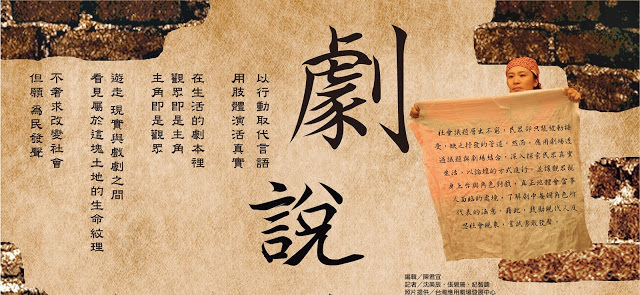 劇說
以行動取代言語
用肢體演活真實
在生活的劇本裡
觀眾即是主角
主角即是觀眾
遊走 現實與戲劇之間
看見屬於這塊土地的生命紋理
不奢求改變社會
但願 為民發聲
社會議題層出不窮，民眾卻只能被動接
受，缺乏抒發的管道。然而，應用劇場透
過議題與劇場結合，深入探索民眾真實
生活，以論壇的方式進行，並讓觀眾親
身上台與角色對戲，真正地體會當事
人面臨的處境，了解劇中每個角色所
代表的涵意。藉此，鼓勵現代人反
思社會現象，嘗試勇敢發聲。
編輯／陳君宜
記者／
照片提供／台灣應用劇場發展中心